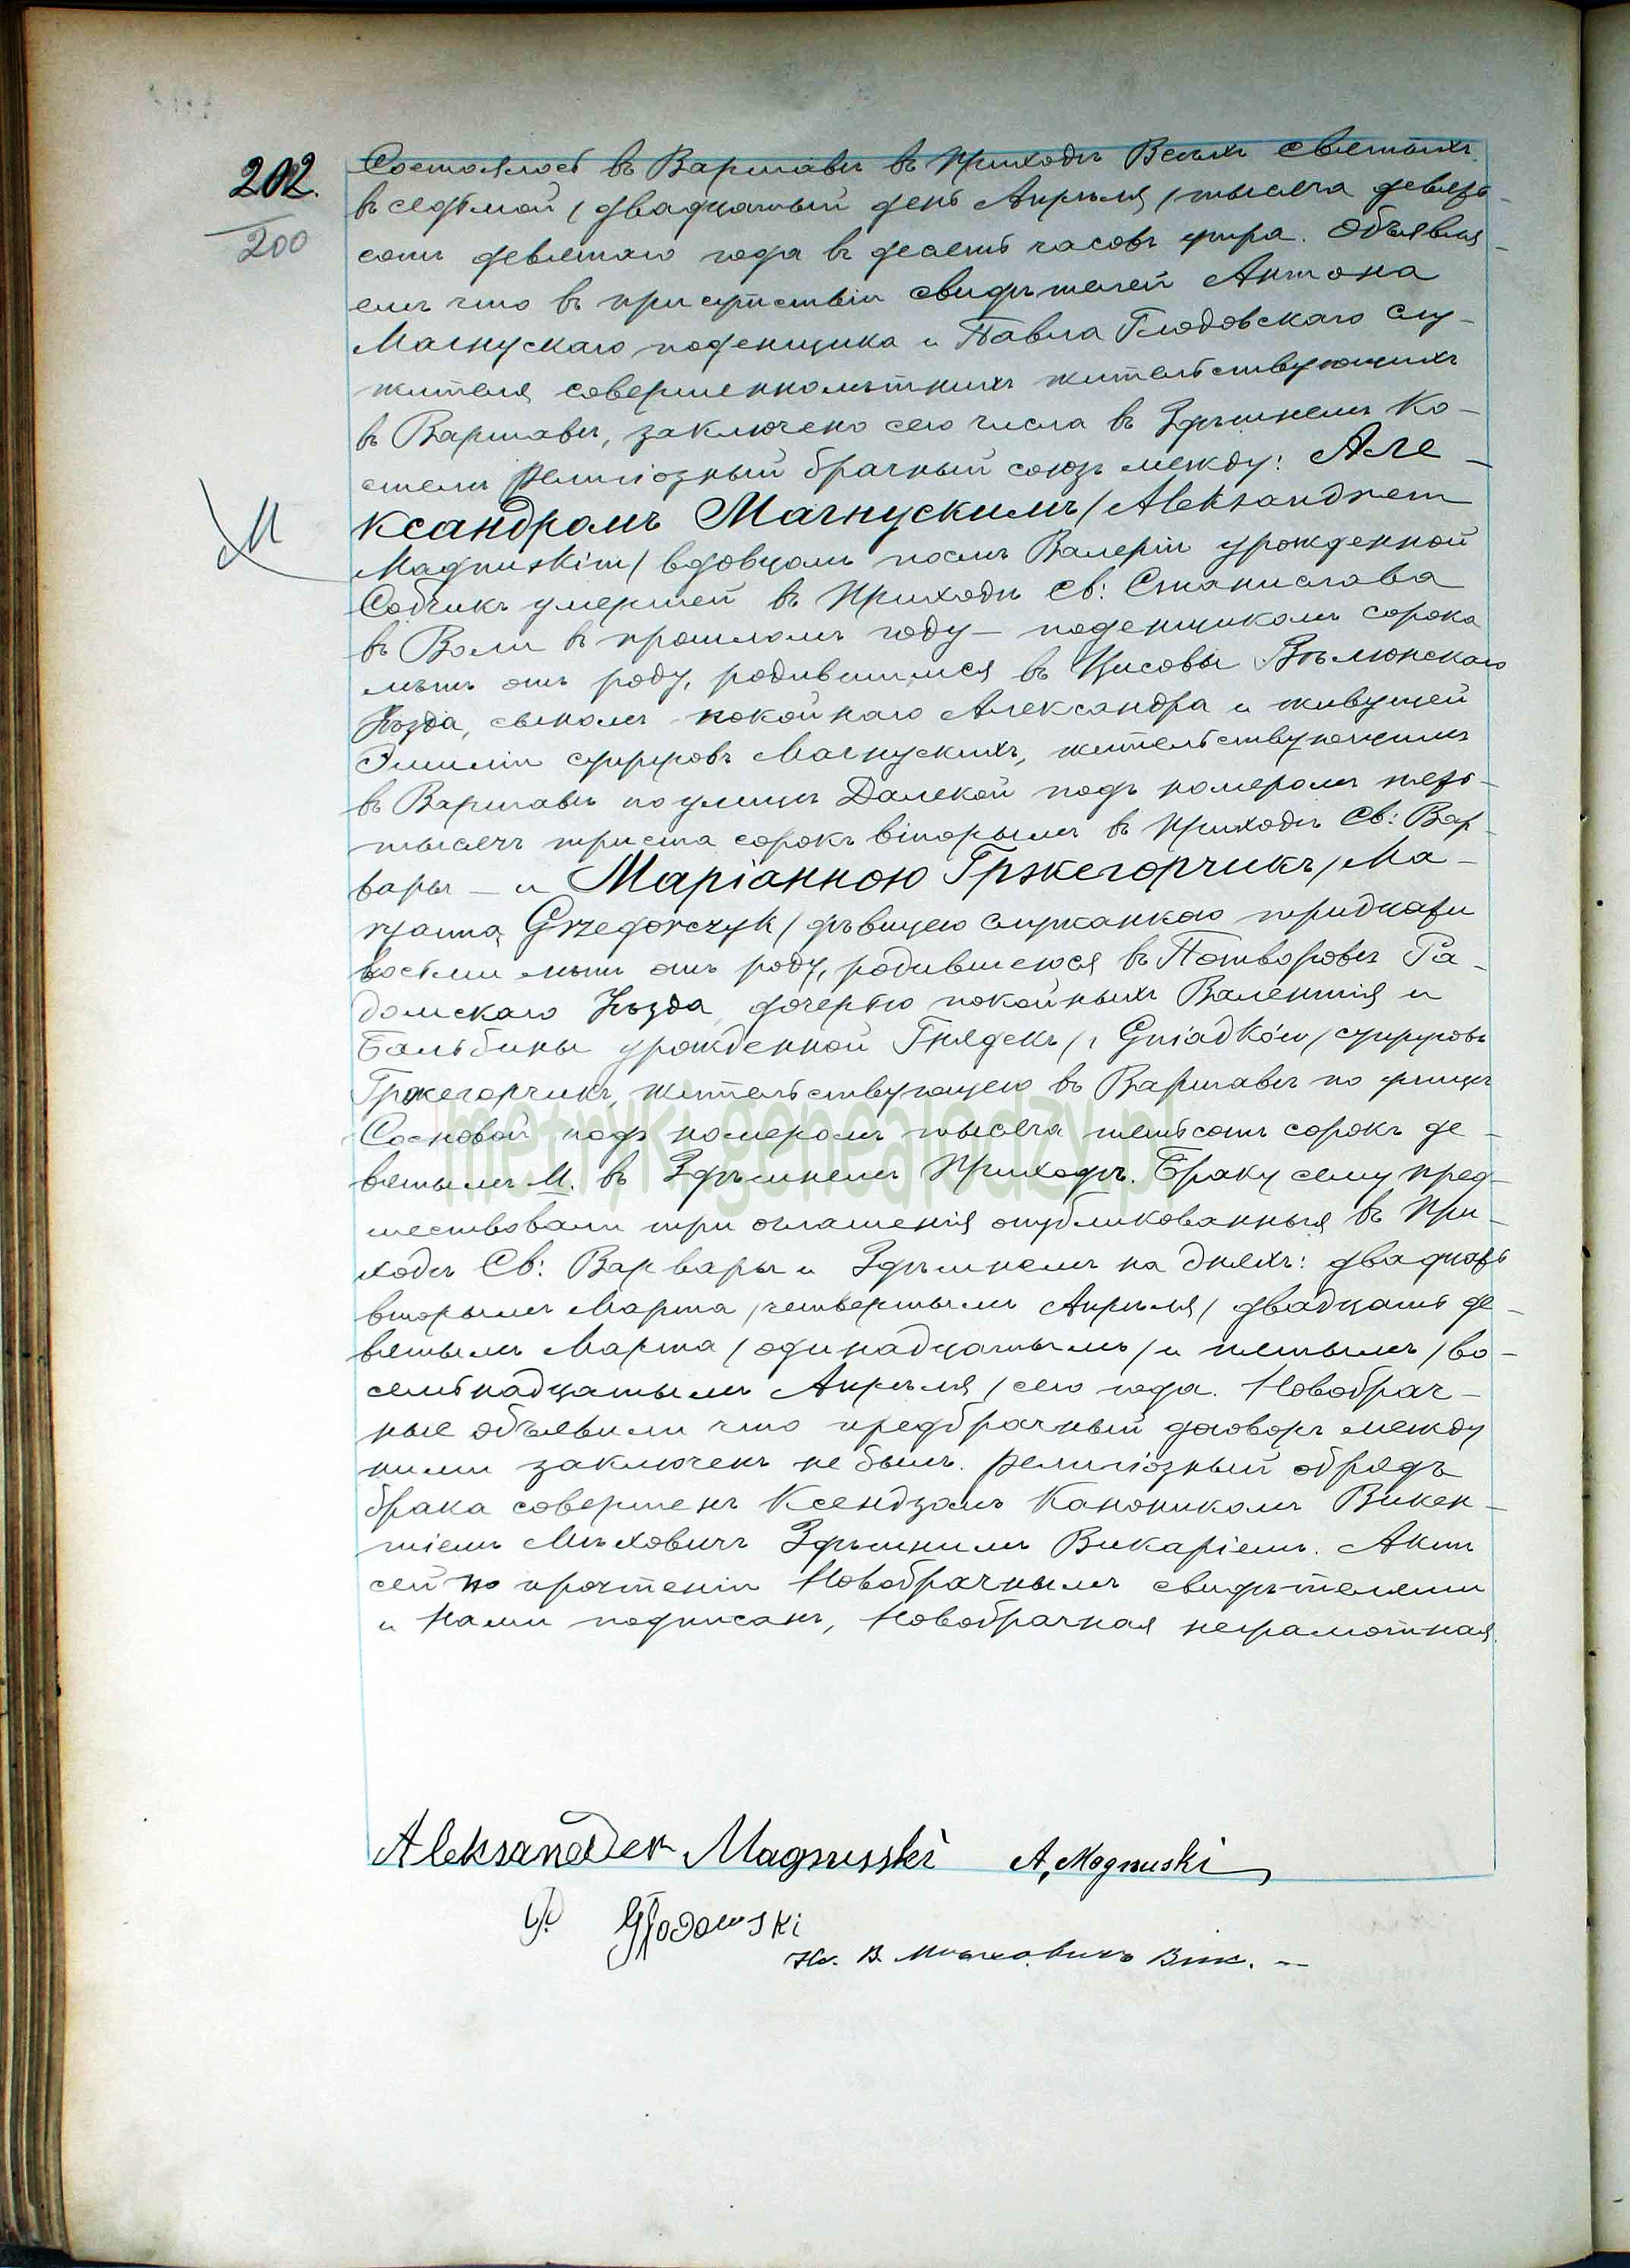 202.
200
Состоялось въ Варшавѣ въ Приходѣ Всѣхъ Святыхъ
въ седьмой / двадцатый день Апрѣля / тысяча девять-
сотъ девятаго года въ десять часовъ утра. Объявля-
емъ что въ присутствіи свидѣтелей Антона
Магнускаго поденщика и Павла Глодовскаго слу-
жителя совершеннолѣтнихъ жительствующихъ
въ Варшавѣ, заключено сего числа въ Здѣшнемъ Ко-
стелѣ религіозный брачный союзъ между: Але-
ксандромъ Магнускимъ / Aleksandrem
Magnuskim / вдовцомъ послѣ Валеріи урожденной
Собчикъ умершей въ Приходѣ Св: Станислава
въ Воли въ прошломъ году – поденщикомъ сорока
лѣтъ отъ роду, родившимся въ Цисовы Вѣлюнскаго
Уѣзда, сыномъ покойнаго Александра и живущей
Эмиліи супруговъ Магнускихъ, жительствующимъ
въ Варшавѣ по улицѣ Далекой подъ номеромъ пять-
тысячъ триста сорокъ вторымъ въ Приходѣ Св: Вар-
вары – и Маріанною Гржегорчикъ / Ma-
ryanną Grzegorczyk / дѣвицею служанкою тридцати
восьми лѣтъ отъ роду, родившеюся въ Потворовѣ Ра-
домскаго Уѣзда, дочерью покойныхъ Валентія и
Бальбины урожденной Гнядекъ / z Gniadków / супруговъ
Гржегорчикъ, жительствующею въ Варшавѣ по улицѣ
Сосновой подъ номеромъ тысяча шестьсотъ сорокъ де-
вятымъ М. въ Здѣшнемъ Приходѣ. Браку сему пред-
шествовали три оглашенія опубликованныя въ При-
ходѣ Св: Варвары и Здѣшнемъ на дняхъ: двадцать
вторымъ Марта / четвертымъ Апрѣля / двадцать де-
вятымъ Марта / одинадцатымъ / и пятымъ / во-
семьнадцатымъ Апрѣля / сего года. Новобрач-
ные объявили что предбрачный договоръ между
ними заключенъ не былъ. Религіозный обрядъ
брака совершенъ Ксендзомъ Каноникомъ Викен-
тіемъ Мѣховичъ Здѣшнимъ Викаріемъ. Актъ
сей по прочтеніи Новобрачнымъ свидѣтелями
и Нами подписанъ, Новобрачная неграмотная.
М
Aleksander Magnuski A. Magnuski
P. Głodowski
Кс. В. Мѣховичъ Вик.
metryki.genealodzy.pl